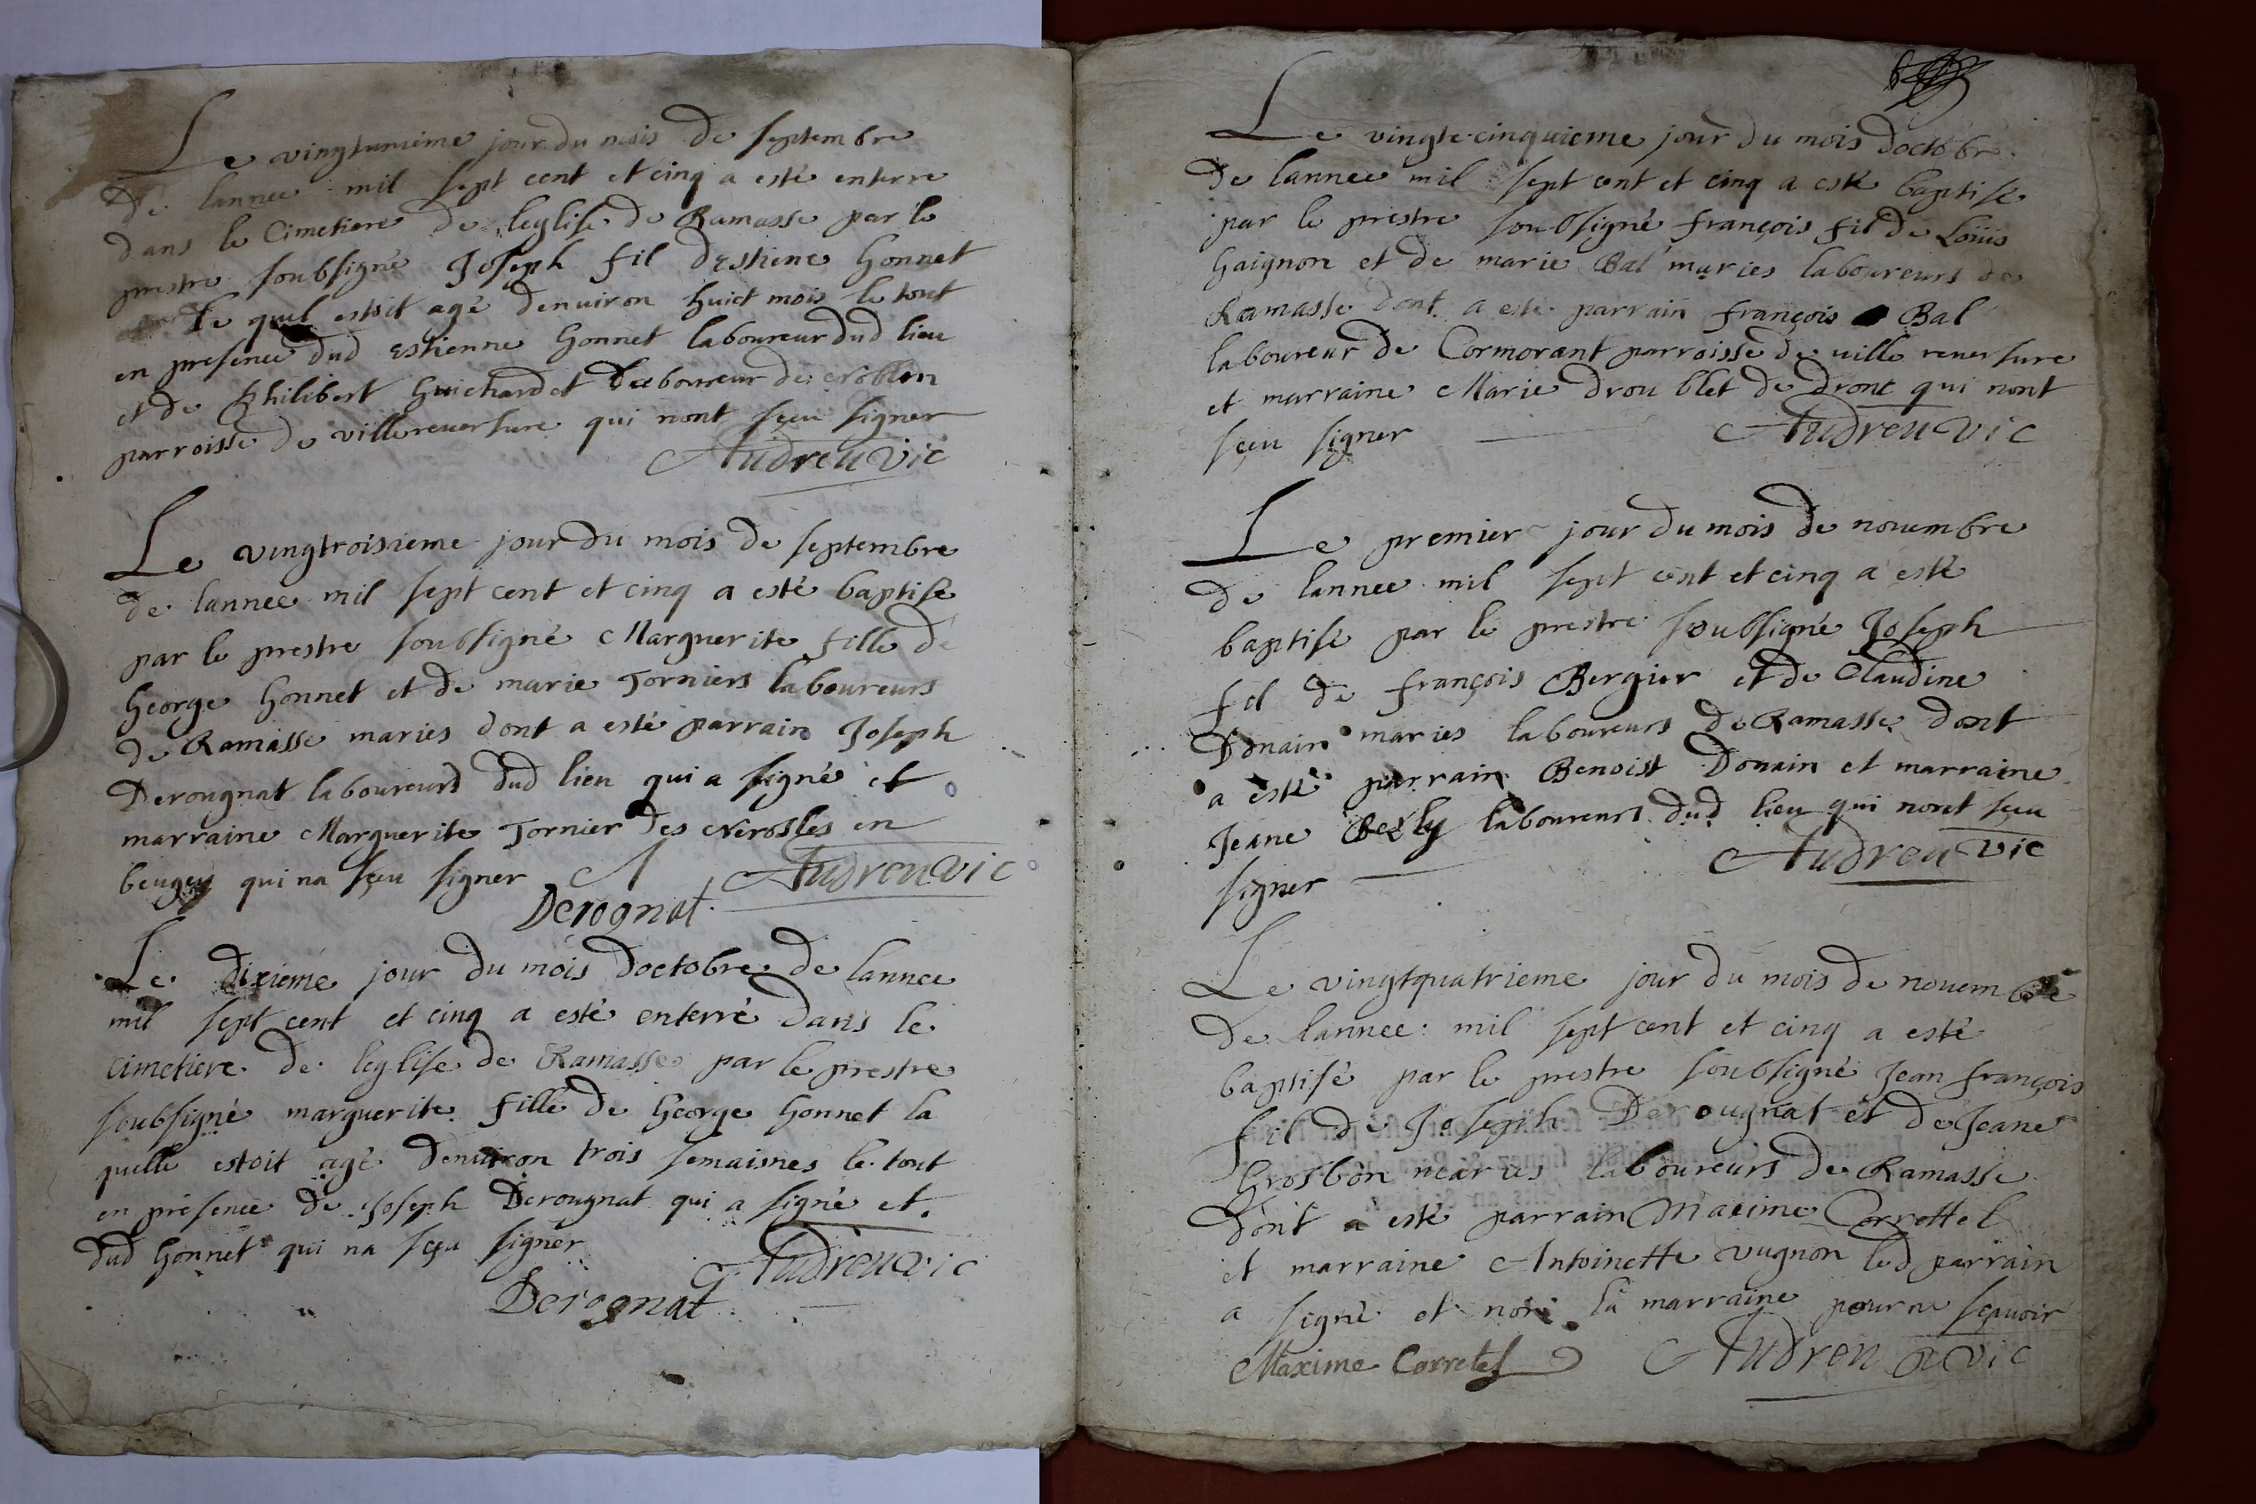 Le vingtunieme jour du mois de septembre
de lannee mil sept cent et cinq a esté enterre
dans le Cimetiere de leglise de Ramasse par le
prestre soubsigné Joseph fil destiene honnet
le quel estoit agé denuiron huict mois le tout
en presence dud estienne honnet laboureur dud lieu
et de philibert guichardet laboureur de
parroisse de villereuersure qui nont sçeu signer
Audreu vic
Le vingtroisieme jour du mois de septembre
de lannee mil sept cent et cinq a esté baptise
par le prestre soubsigné Marguerite fille de
george honnet et de marie Torniers laboureurs
de Ramasse mariés dont a esté parrain Joseph
Derougnat laboureurs dud lieu qui a signé et
marraine Marguerite Tornier des en
beugey qui na sçeu signer
Audreu vic
Derognat
Le dixieme jour du mois doctobre de lannee
mil sept cent et cinq a esté enterré dans le
cimetiere de leglise de Ramasse par le prestre
soubsigné marguerite fille de george honnet la
quelle estoit agé denuiron trois semaisnes le tout
en présence de Joseph Derougnat qui a signé et
dud honnet qui na sçeu signer
Audreu vic
Derognat
Le vingte cinquieme jour du mois doctobre
de lannee mil sept cent et cinq a esté baptisé
par le prestre soubsigné françois fil de Loüis
gaignon et de marie Bal maries laboureurs de
Ramasse dont a esté parrain françois Bal
laboureur de Cormorant parroisse de ville reuersure
et marraine Marie droublet de dront qui nont
sçeu signer
Audreu vic
Le premier jour du mois de nouembre
de lannee mil sept cent et cinq a esté
baptisé par le prestre soubsigné Joseph
fil de françois Bergier et de Claudine
Donain maries laboureurs de Ramasse dont
a esté parrain Benoist Donain et marraine
Jeane laboureurs dud lieu qui nont sçeu
signer
Audreu vic
Le vingtquatrieme jour du mois de nouembre
de lannee mil sept cent et cinq a esté
baptisé par le prestre soubsigné Jean françois
fil de Joseph Derougnat et de Jeane
grosbon maries laboureurs de Ramasse
dont a esté parrain Maxime Correttel
et marraine Antoinette vugnon led parrain
a signé et non la marraine pour ne sçauoir
Maxime Corretel
Audreu vic